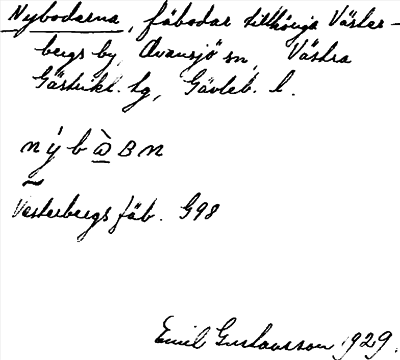 Nybodarna, fäbodar tillhöriga Väster-
bergs by, Ovansjö sn, Västra
Gästrikl. tg, Gävleb. l.
nýbὼBn
~
Vesterbergs fäb. G98
Emil Gustavsson 1929.